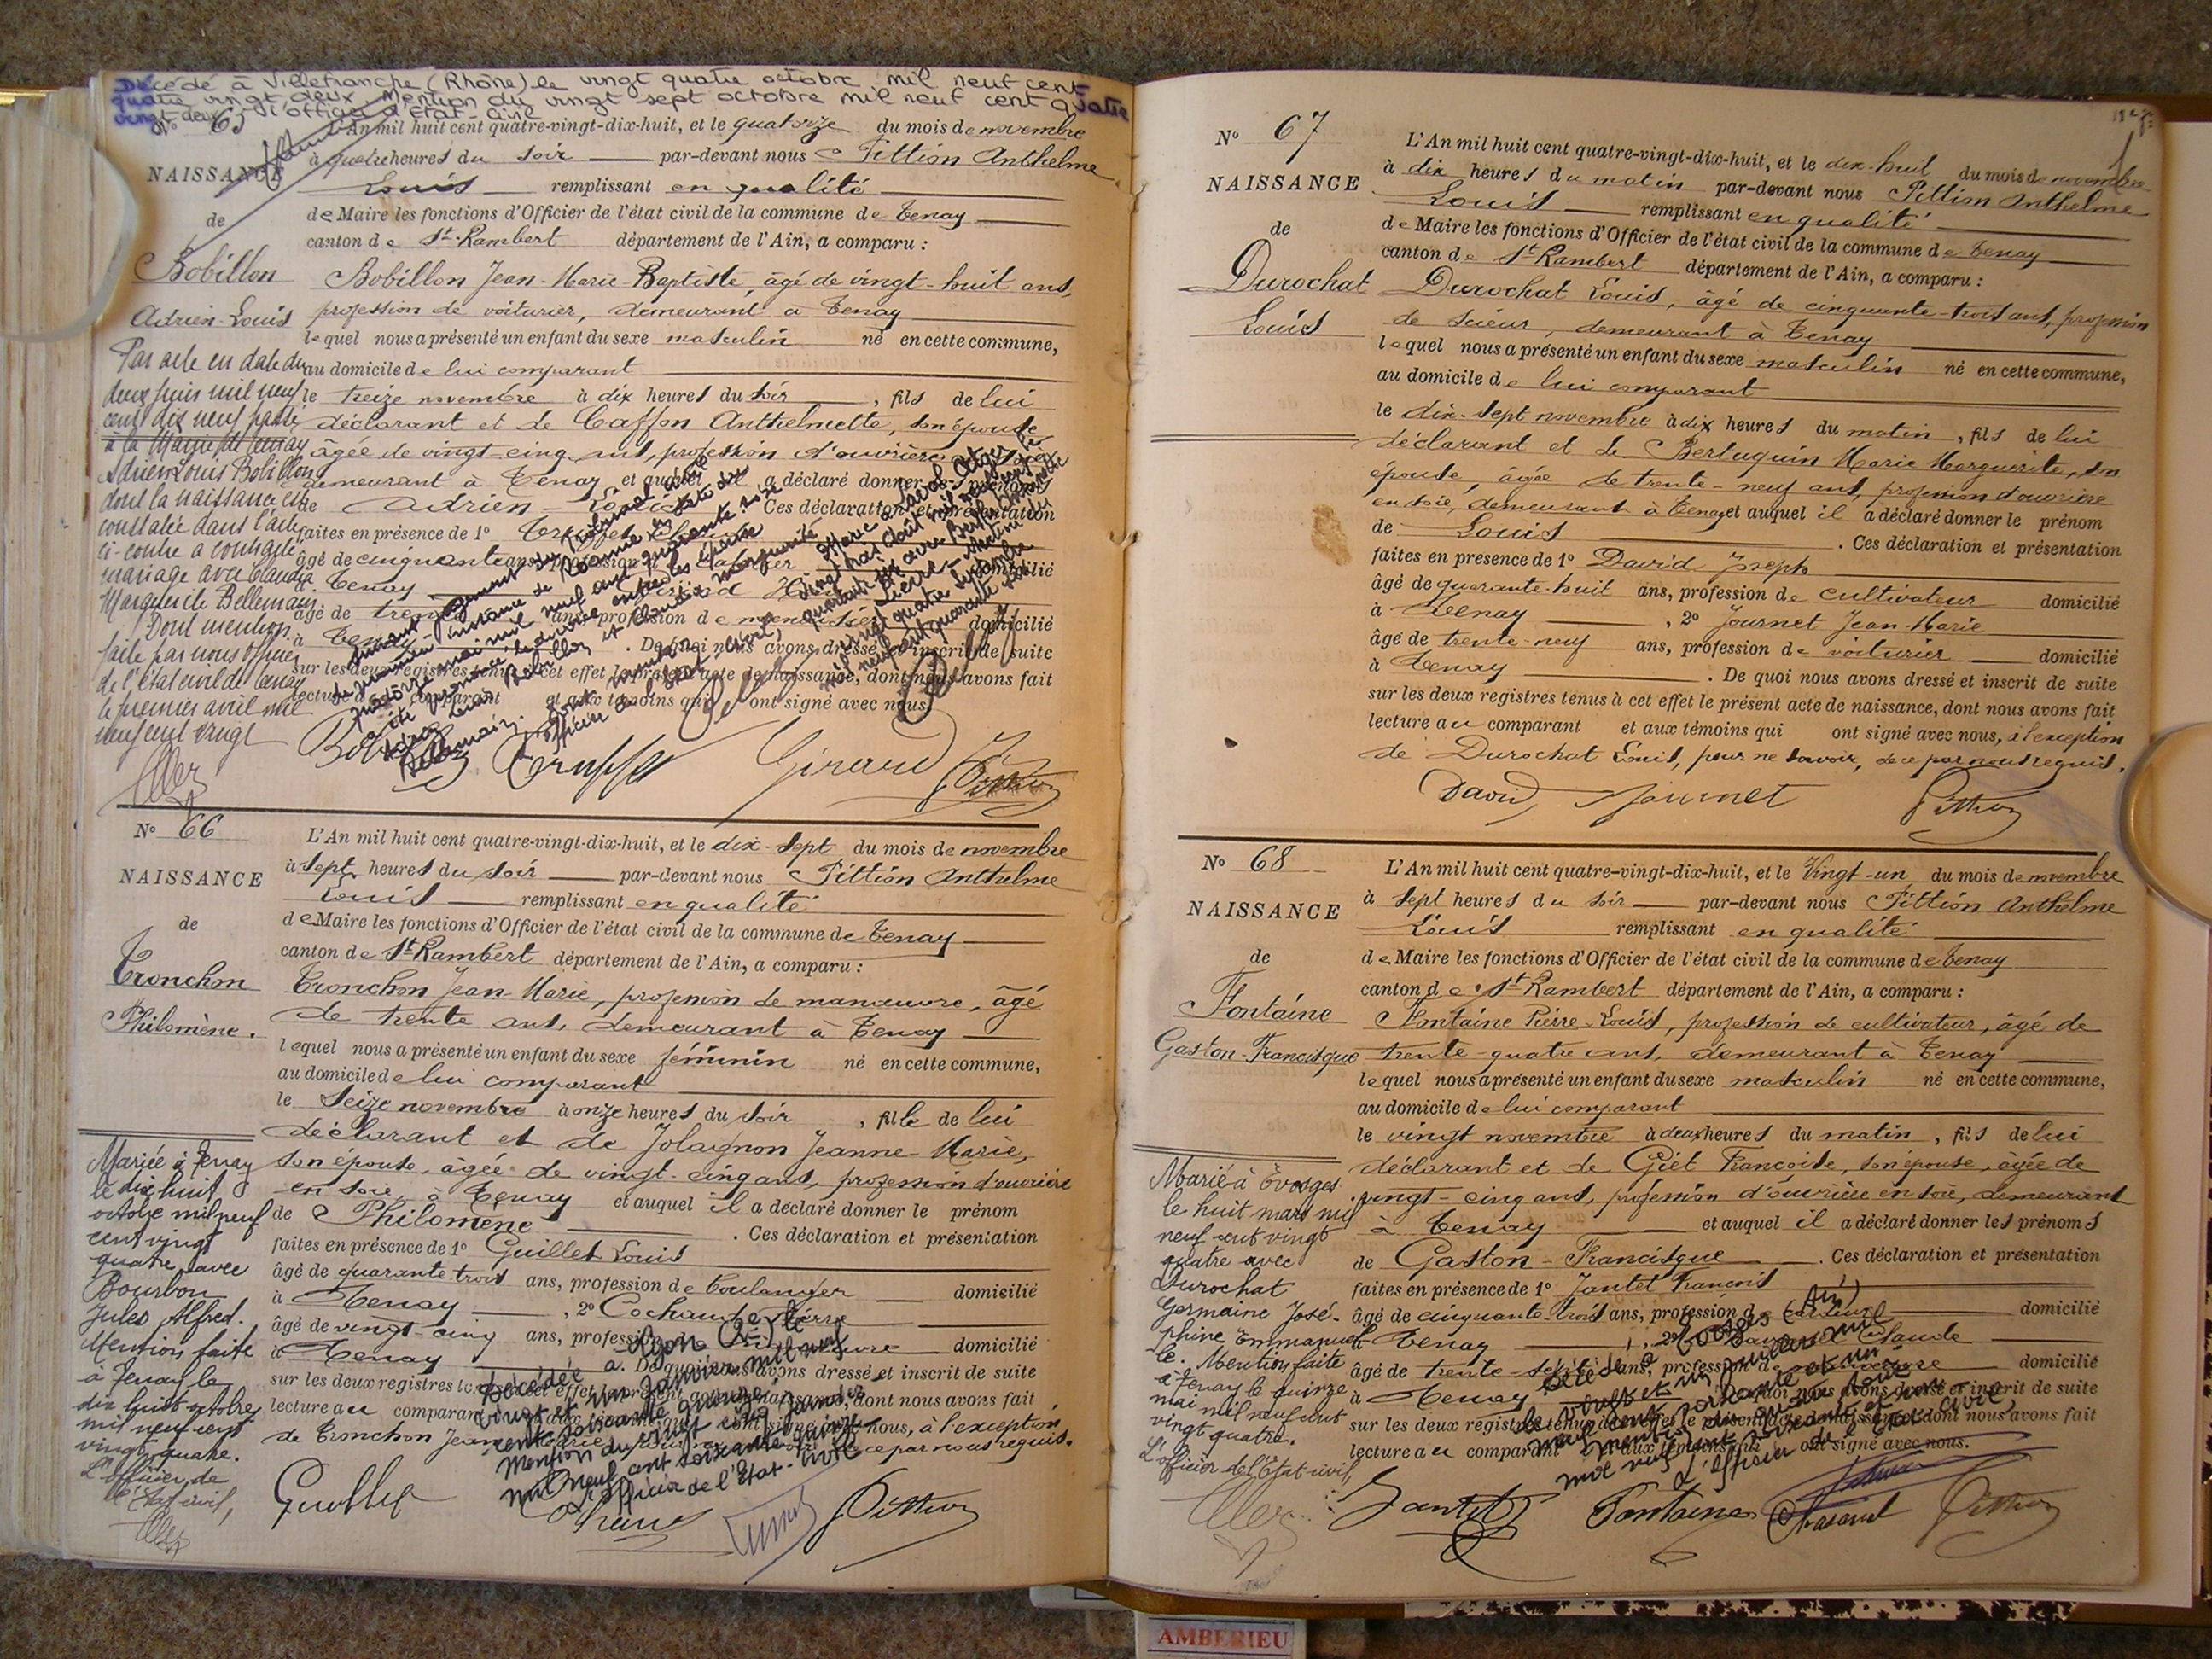 Décédé à Villefranche (Rhône) le vingt quatre octobre mil neuf cent
quatre vingt deux. Mention du vingt sept octobre mil neuf cent quatre
vingt deux. L'officier d'Etat-Civil
N° 65
NAISSANCE
de
Bobillon
Adrien-Louis
L'An mil huit cent quatre-vingt-dix-huit, et le quatorze du mois de novembre
à quatre heures du soir par-devant nous Pittion Anthelme
Louis remplissant en qualité
de Maire les fonctions d'Officier de l'état civil de la commune de Tenay
canton de St-Rambert département de l'Ain, a comparu :
Bobillon Jean-Marie-Baptiste, âgé de vingt-huit ans,
profession de voiturier, demeurant à Tenay
lequel nous a présenté un enfant du sexe masculin né en cette commune,
au domicile de lui comparant
le treize novembre à dix heures du soir, fils de lui
déclarant et de Caffon Anthelmette, son épouse
âgée de vingt-cinq ans, profession d'ouvrière
demeurant à Tenay et auquel il a déclaré donner les prénoms
de Adrien-Louis Ces déclaration et présentation
faites en présence de 1°
âgé de cinquante ans, profession de domicilié
à Tenay Girard
âgé de ans, profession de menuisier domicilié
à Tenay. De quoi nous avons dressé et inscrit de suite
sur les deux registres tenus à cet effet le présent acte de naissance, dont nous avons fait
lecture au comparant et aux témoins qui ont signé avec nous.
Par acte en date du
deux juin mil neuf
cent dix neuf passé
à la Mairie de Tenay
Adrien Louis Bobillon
dont la naissance est
constatée dans l'acte
ci-contre a contracté
mariage avec Claudia
Marguerite Bellemain
Dont mention
faite par nous officier
de l'état civil de Tenay
le premier avril mil
neuf cent vingt
Girard Pittion
N° 66
NAISSANCE
de
Tronchon
Philomène.
L'An mil huit cent quatre-vingt-dix-huit, et le dix-sept du mois de novembre
à sept heures du soir par-devant nous Pittion Anthelme
Louis remplissant en qualité
de Maire les fonctions d'Officier de l'état civil de la commune de Tenay
canton de St-Rambert département de l'Ain, a comparu :
Tronchon Jean-Marie, profession de manœuvre, âgé
de trente ans, demeurant à Tenay
lequel nous a présenté un enfant du sexe féminin né en cette commune,
au domicile de lui comparant
le seize novembre à onze heures du soir, fille de lui
déclarant et de Jolagnon Jeanne-Marie,
son épouse, âgée de vingt-cinq ans, profession d'ouvrière
en soie, à Tenay et auquel il a déclaré donner le prénom
de Philomène. Ces déclaration et présentation
faites en présence de 1° Guillet Louis
âgé de quarante trois ans, profession de boulanger domicilié
à Tenay, 2° Cochaud Pierre
âgé de vingt-cinq ans, profession de manœuvre domicilié
à Tenay. De quoi nous avons dressé et inscrit de suite
sur les deux registres tenus à cet effet le présent acte de naissance, dont nous avons fait
lecture au comparant et aux témoins qui ont signé avec nous, à l'exception
de Tronchon Jean-Marie, pour ne savoir, de ce par nous requis.
Mariée à Tenay
le dix huit
octobre mil neuf
cent vingt
quatre avec
Bourbon
Jules Alfred.
Mention faite
à Tenay le
dix huit octobre
mil neuf cent
vingt quatre.
L'officier de
l'Etat civil,
Décédée à Lyon le
vingt et un janvier mil neuf
cent soixante quinze
Mention du vingt cinq janvier
mil neuf cent soixante quinze
L'officier de l'Etat-civil
Guillet Pittion
N° 67
NAISSANCE
de
Durochat
Louis
L'An mil huit cent quatre-vingt-dix-huit, et le dix-huit du mois de novembre
à dix heures du matin par-devant nous Pittion Anthelme
Louis remplissant en qualité
de Maire les fonctions d'Officier de l'état civil de la commune de Tenay
canton de St Rambert département de l'Ain, a comparu :
Durochat Louis, âgé de cinquante-trois ans, profession
de scieur, demeurant à Tenay
lequel nous a présenté un enfant du sexe masculin né en cette commune,
au domicile de lui comparant
le dix-sept novembre à dix heures du matin, fils de lui
déclarant et de Berluquin Marie Marguerite, son
épouse, âgée de trente-neuf ans, profession d'ouvrière
en soie, demeurant à Tenay et auquel il a déclaré donner le prénom
de Louis. Ces déclaration et présentation
faites en présence de 1° David Joseph
âgé de quarante-huit ans, profession de cultivateur domicilié
à Tenay, 2° Journet Jean-Marie
âgé de trente-neuf ans, profession de voiturier domicilié
à Tenay. De quoi nous avons dressé et inscrit de suite
sur les deux registres tenus à cet effet le présent acte de naissance, dont nous avons fait
lecture au comparant et aux témoins qui ont signé avec nous, à l'exception
de Durochat Louis, pour ne savoir, de ce par nous requis.
David Journet Pittion
N° 68
NAISSANCE
de
Fontaine
Gaston-Francisque
L'An mil huit cent quatre-vingt-dix-huit, et le Vingt-un du mois de novembre
à sept heures du soir par-devant nous Pittion Anthelme
Louis remplissant en qualité
de Maire les fonctions d'Officier de l'état civil de la commune de Tenay
canton de St-Rambert département de l'Ain, a comparu :
Fontaine Pierre-Louis, profession de cultivateur, âgé de
trente-quatre ans, demeurant à Tenay
lequel nous a présenté un enfant du sexe masculin né en cette commune,
au domicile de lui comparant
le vingt novembre à deux heures du matin, fils de lui
déclarant et de Giet Françoise, son épouse, âgée de
vingt-cinq ans, profession d'ouvrière en soie, demeurant
à Tenay et auquel il a déclaré donner les prénoms
de Gaston-Francisque. Ces déclaration et présentation
faites en présence de 1° Jantet François
âgé de cinquante-trois ans, profession de domicilié
à Tenay, 2° Claude
âgé de trente-sept ans, profession de manœuvre domicilié
à Tenay. De quoi nous avons dressé et inscrit de suite
sur les deux registres tenus à cet effet le présent acte de naissance, dont nous avons fait
lecture au comparant et aux témoins qui ont signé avec nous.
Marié à Evosges
le huit mars mil
neuf cent vingt
quatre avec
Durochat
Germaine José-
phine Emmanuel-
le. Mention faite
à Tenay le quinze
mai mil neuf cent
vingt quatre.
L'officier de l'Etat-civil,
Décédé à Evosges (Ain)
le vingt et un juillet mil
neuf cent soixante et un
mention du quatre août
mil neuf cent soixante et un
L'officier de l'Etat civil,
Jantet Fontaine Pittion
AMBERIEU